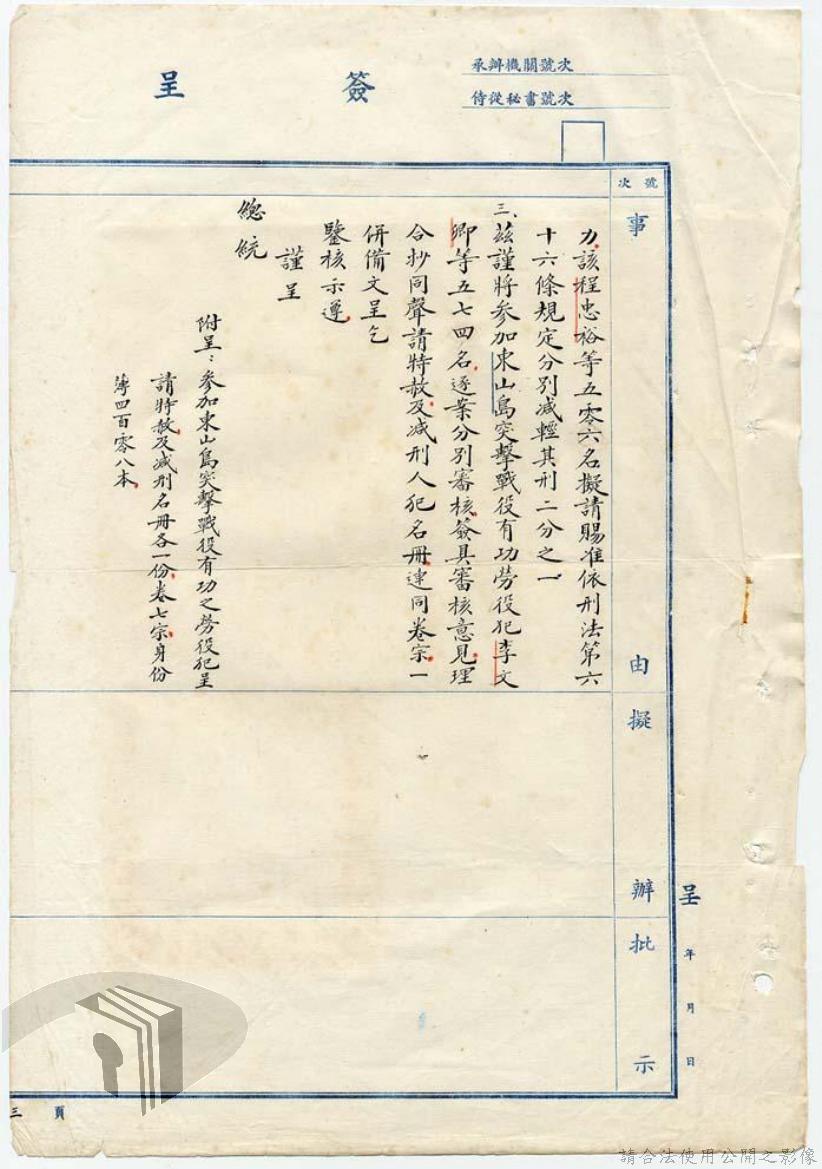 簽呈
承辦機關號次
侍從秘書號次
號次
事由
擬辦
批示
呈 年 月 日
力、該程忠裕等五零六名擬請賜准依刑法第六
十六條規定分別減輕其刑二分之一
三、茲謹將參加東山島突擊戰役有功勞役犯李文
卿等五七四名、逐案分別審核、簽具審核意見、理
合抄同聲請特赦、及減刑人犯名冊、連同卷宗、一
併備文呈乞
鑒核示遵、
謹呈
總統
附呈：參加東山島突擊戰役有功之勞役犯呈
請特赦、及減刑名冊各一份、卷七宗、身份
簿四百零八本、
三頁
請合法使用公開之影像